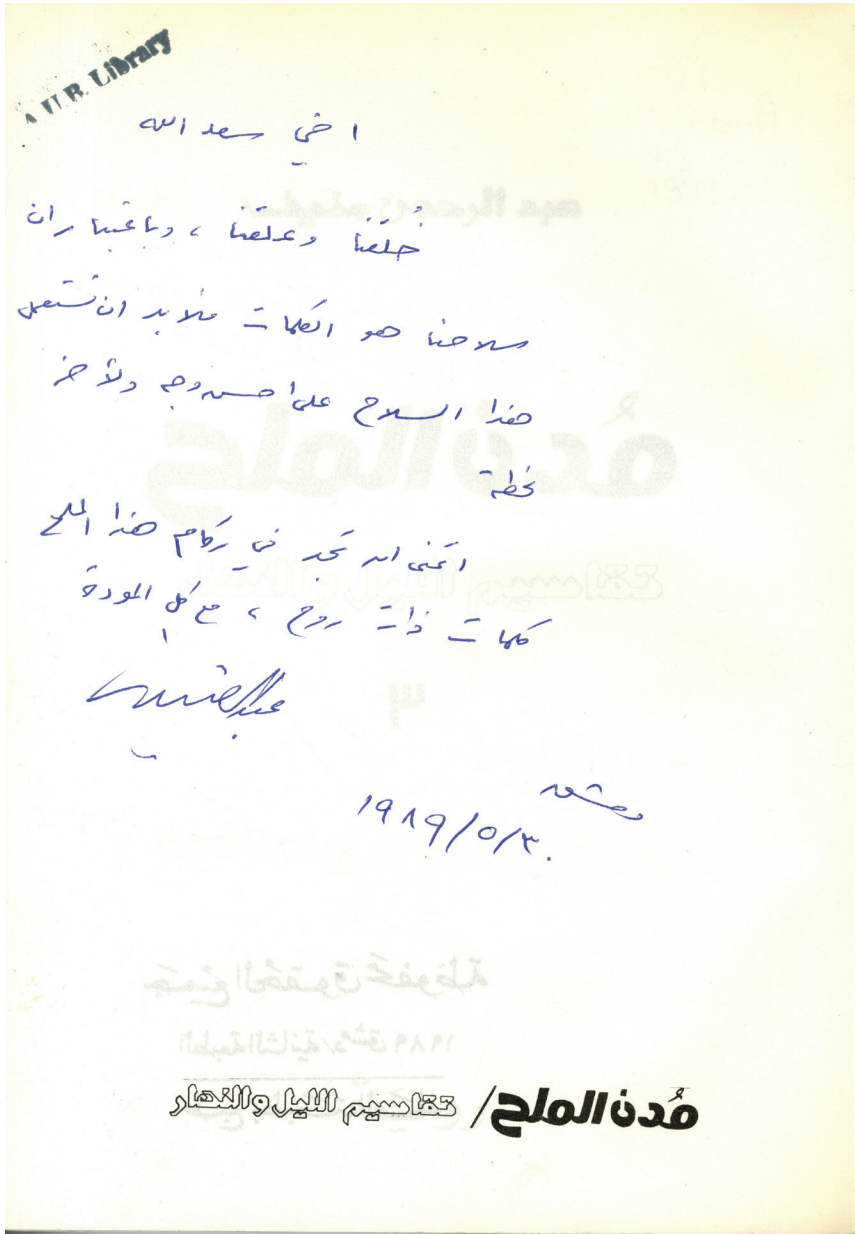 A.U.B. Library
اخي سعد الله
خُلقنا وعلقنا، وباعتبار ان
سلاحنا هو الكلمات فلابد ان نستعمل
هذا السلاح على احسن وجه ولآخر
لحظة
اتمنى ان تجد في ركام هذا الملح
كلمات ذات روح، مع كل المودة
عبد الرحمن
دمشق
١٩٨٩/٥/٣٠
مُدن الملح / تقاسيم الليل والنهار